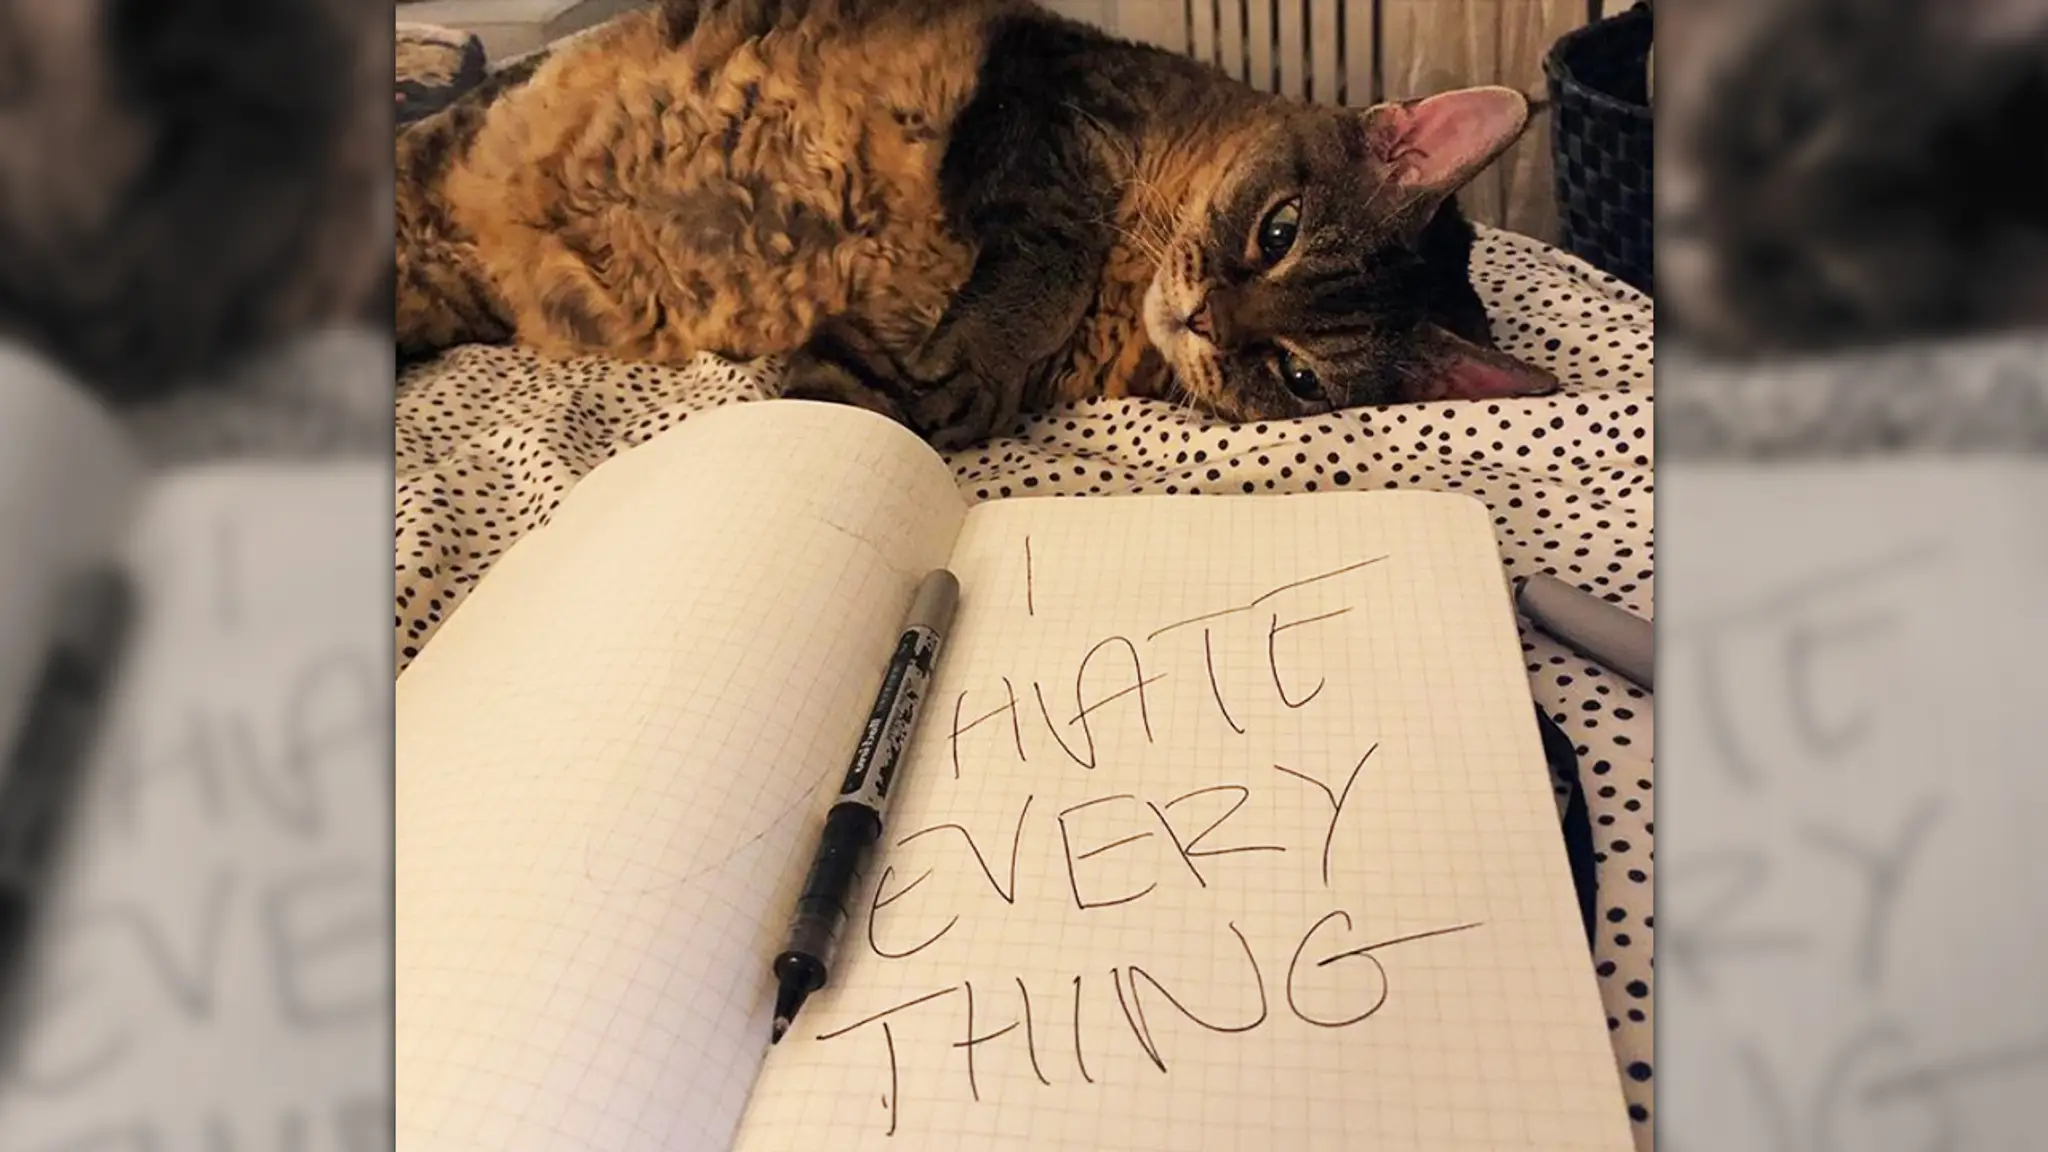 I
HATE
EVERY
THING
uni-ball